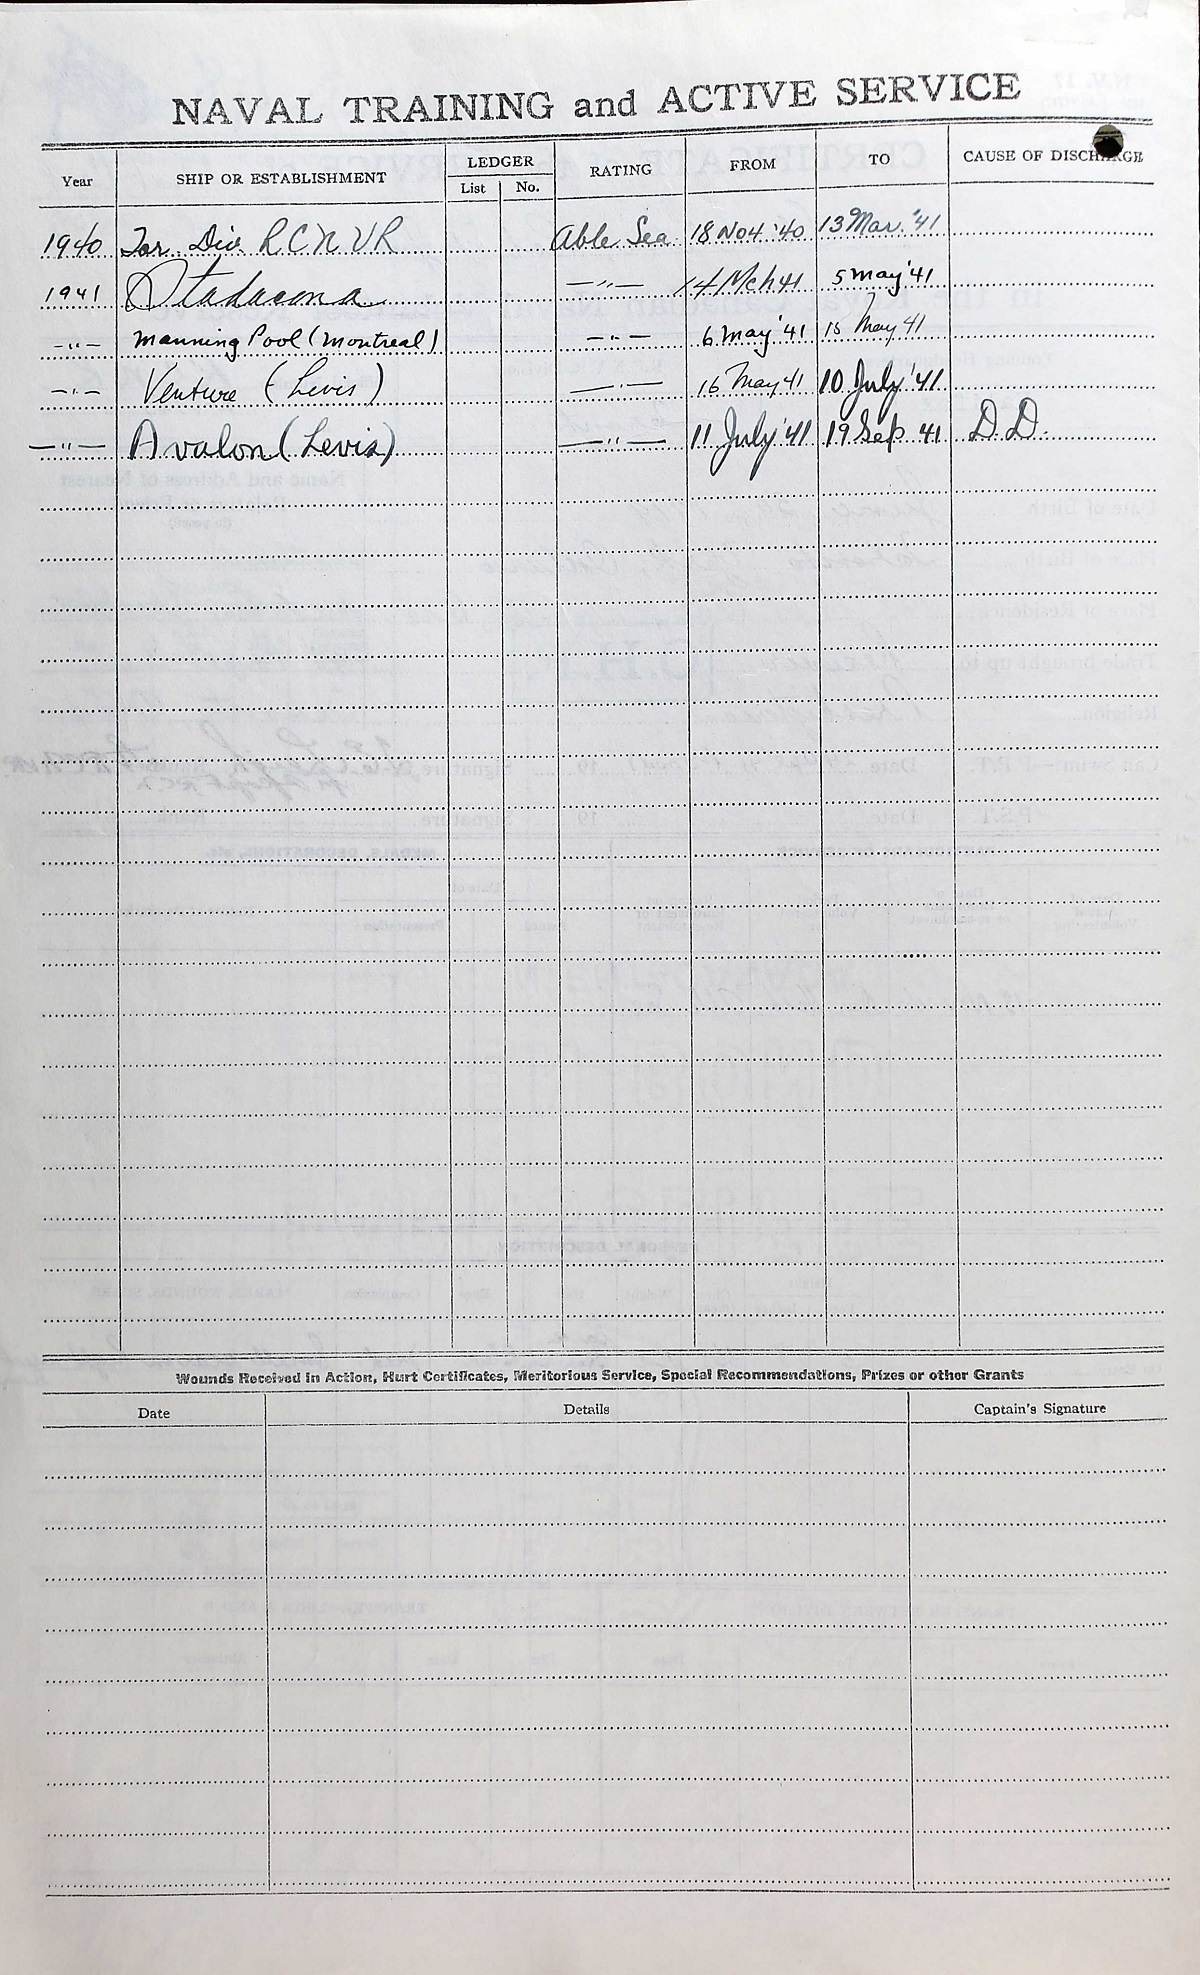 NAVAL TRAINING and ACTIVE SERVICE
Year SHIP OR ESTABLISHMENT LEDGER List No. RATING FROM TO CAUSE OF DISCHARGE
1940 Tor. Div. R C N V R Able Sea. 18 Nov '40 13 Mar. '41
1941 Stadacona —"— 14 Mch 41 5 May '41
—"— Manning Pool (Montreal) —"— 6 May '41 15 May 41
—"— Venture (Levis) —"— 16 May 41 10 July '41
—"— Avalon (Levis) —"— 11 July '41 19 Sep. 41 D.D.
Wounds Received in Action, Hurt Certificates, Meritorious Service, Special Recommendations, Prizes or other Grants
Date Details Captain's Signature